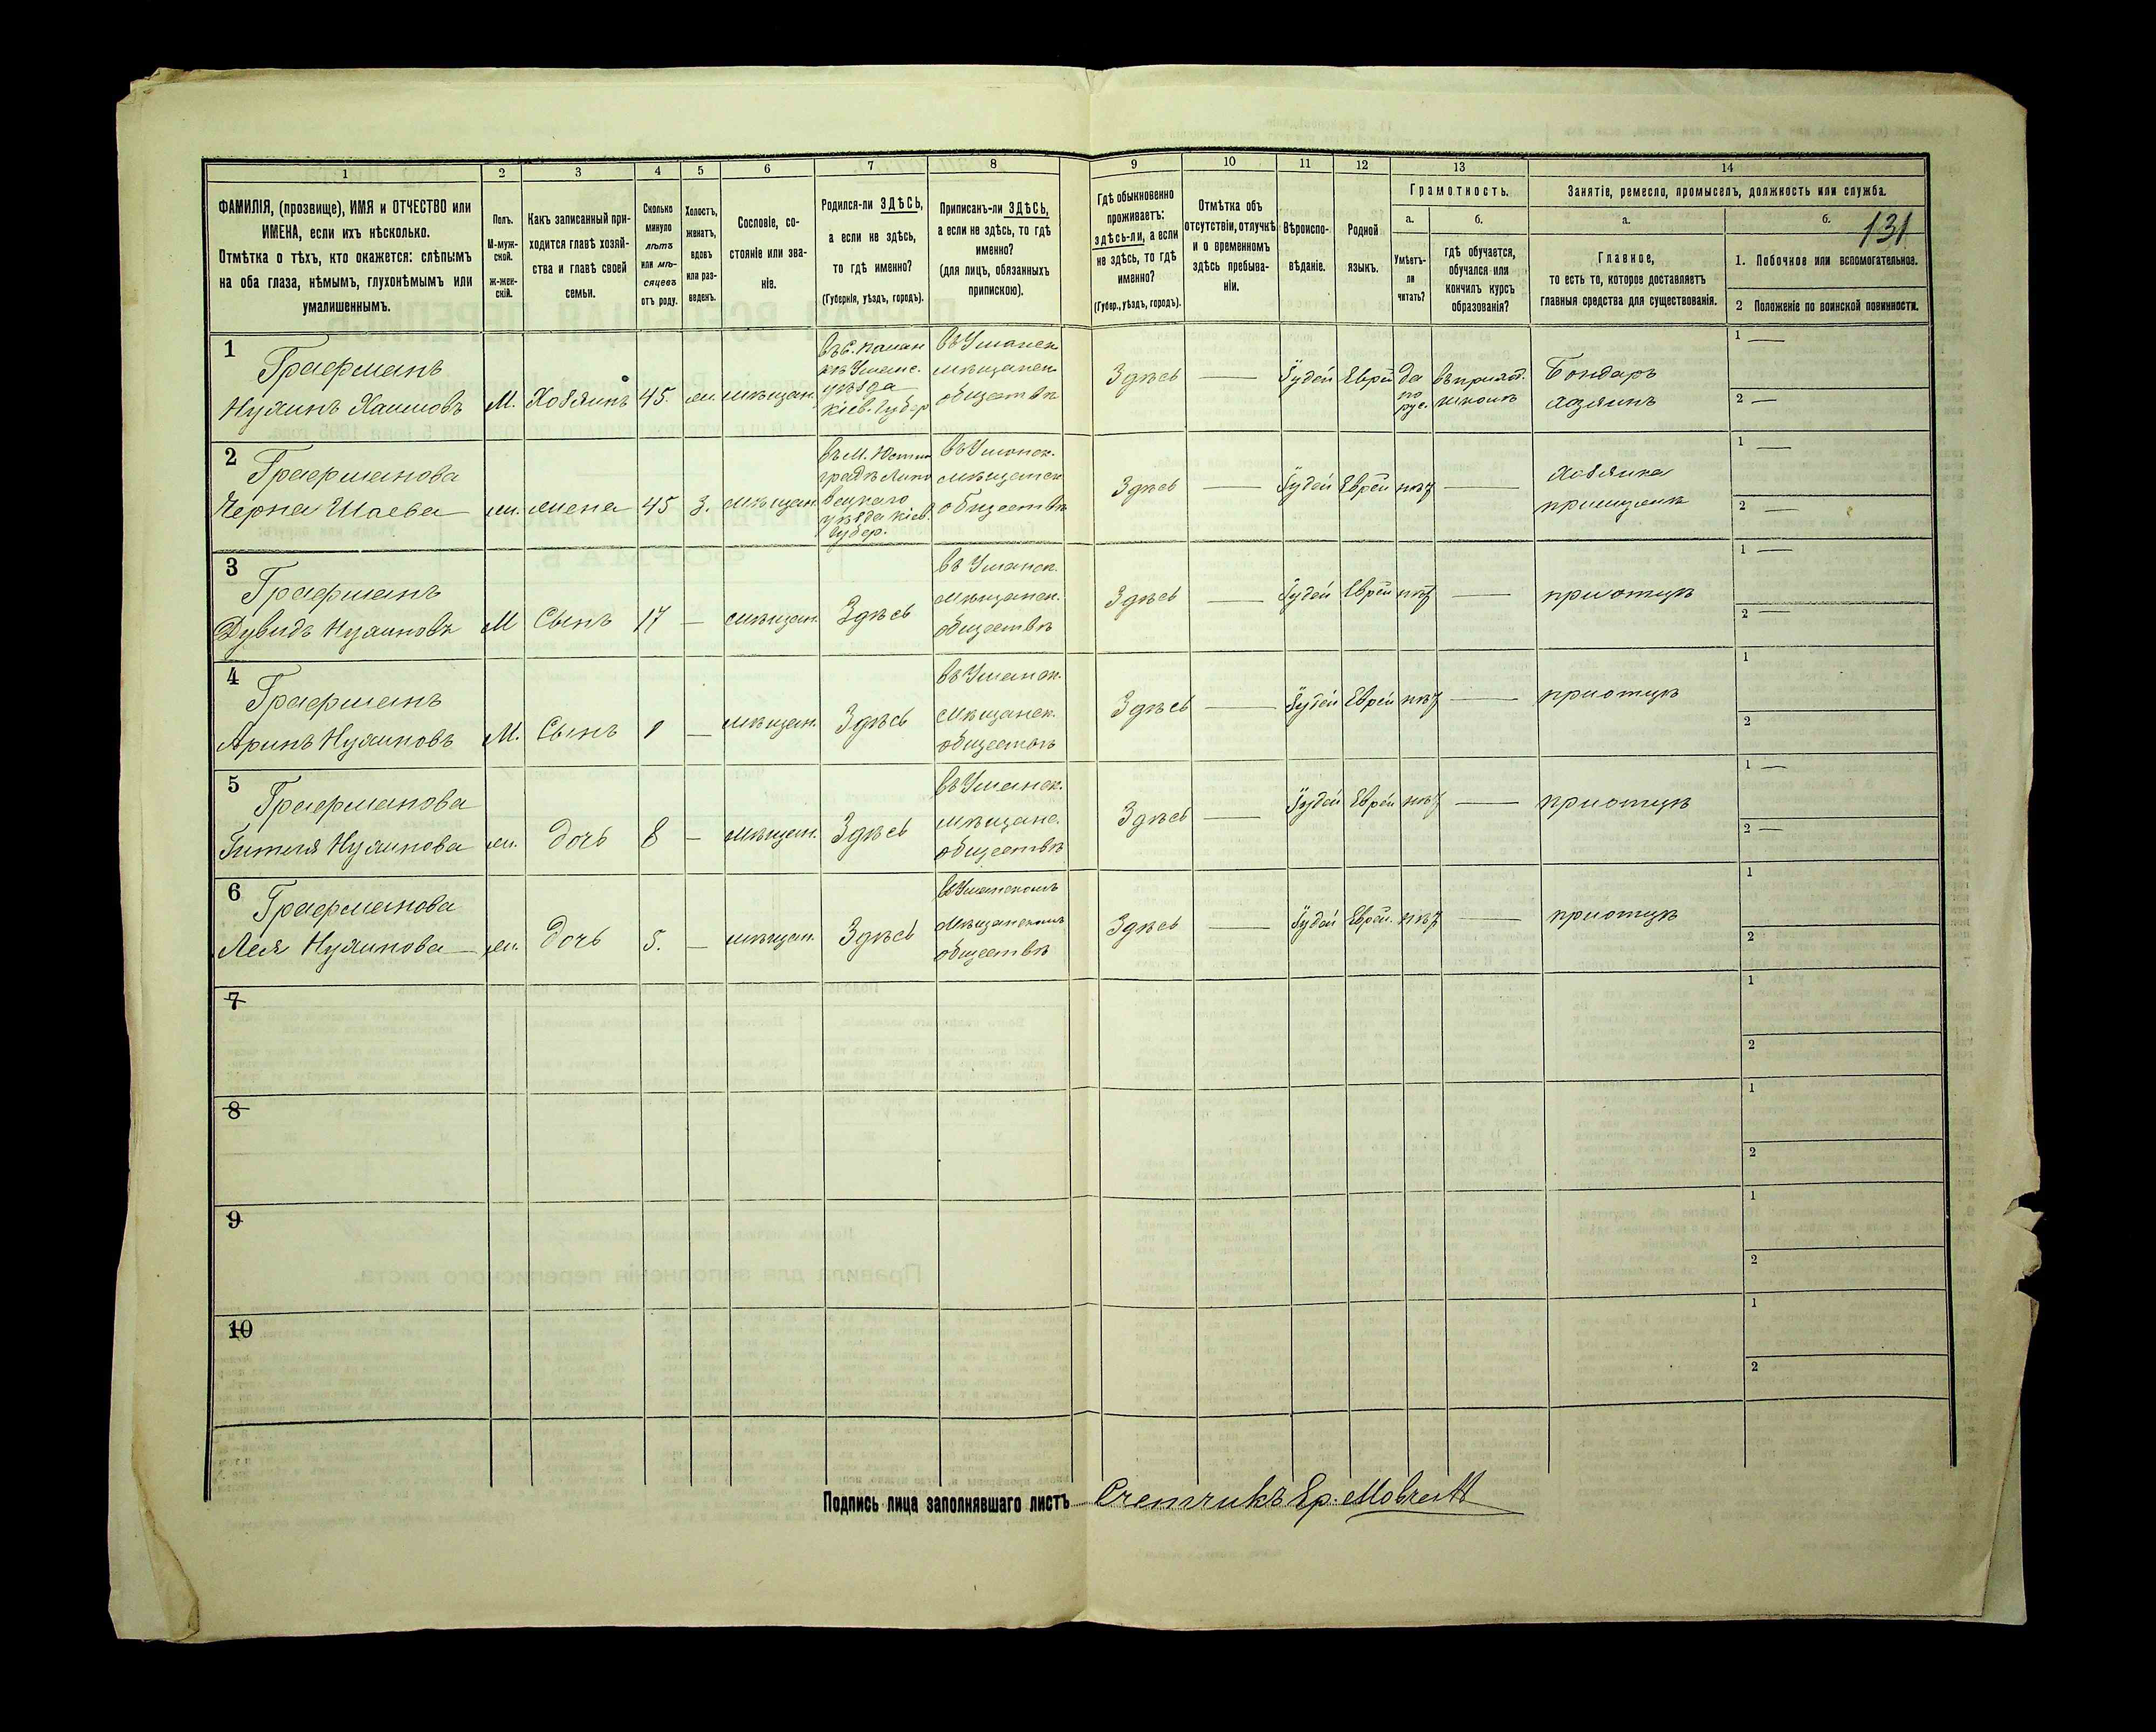 131
1
2
3
4
5
6
7
8
9
10
11
12
13
14
ФАМИЛІЯ, (прозвище), ИМЯ и ОТЧЕСТВО или
ИМЕНА, если ихъ нѣсколько.
Отмѣтка о тѣхъ, кто окажется: слѣпымъ
на оба глаза, нѣмымъ, глухонѣмымъ или
умалишеннымъ.
Полъ.
М-муж-
ской.
ж-жен-
скій.
Какъ записанный при-
ходится главѣ хозяй-
ства и главѣ своей
семьи.
Сколько
минуло
лѣтъ
или мѣ-
сяцевъ
отъ роду.
Холостъ,
женатъ,
вдовъ
или раз-
веденъ.
Сословіе, со-
стояніе или зва-
ніе.
Родился-ли ЗДѢСЬ,
а если не здѣсь,
то гдѣ именно?
(Губернія, уѣздъ, городъ).
Приписанъ-ли ЗДѢСЬ,
а если не здѣсь, то гдѣ
именно?
(для лицъ, обязанныхъ
припискою).
Гдѣ обыкновенно
проживаетъ:
здѣсь-ли, а если
не здѣсь, то гдѣ
именно?
(Губер., уѣздъ, городъ).
Отмѣтка объ
отсутствіи, отлучкѣ
и о временномъ
здѣсь пребыва-
ніи.
Вѣроиспо-
вѣданіе.
Родной
языкъ.
Грамотность.
а.
Умѣетъ-
ли
читать?
б.
гдѣ обучается,
обучался или
кончилъ курсъ
образованія?
Занятіе, ремесло, промыселъ, должность или служба.
а.
Главное,
то есть то, которое доставляетъ
главныя средства для существованія.
б.
1. Побочное или вспомогательное.
2 Положеніе по воинской повинности.
1
Граерманъ
Нухимъ Хаимовъ
М.
Хозяинъ
45.
ж.
мѣщан.
уѣзда
Кіев. Губер
въ Уманск.
мѣщанск.
обществѣ
Здѣсь
—
Іудей
Еврей
да
по
рус.
школѣ
Бондарь
хозяинъ
1 —
2 —
2
Граерманова
Черна Шаева
ж.
жена
45
З.
мѣщан.
въ М. Юстин
градѣ Липо
вецкаго
уѣзда Кіев.
Губер.
въ Уманск.
мѣщанск
обществѣ
Здѣсь
—
Іудей
Еврей
нѣт
—
хозяйка
1 —
2 —
3
Граерманъ
Дувидъ Нухимовъ
М
Сынъ
17
—
мѣщан.
Здѣсь
въ Уманск.
мѣщанск.
обществѣ
Здѣсь
—
Іудей
Еврей
нѣт
—
приотцѣ
1 —
2 —
4
Граерманъ
Аринъ Нухимовъ
М.
Сынъ
—
мѣщан.
Здѣсь
въ Уманск.
мѣщанск.
обществѣ
Здѣсь
—
Іудей
Еврей
нѣт
—
приотцѣ
1
2
5
Граерманова
Гитля Нухимова
ж.
дочь
8
—
мѣщан.
Здѣсь
въ Уманск.
мѣщанс.
обществѣ
Здѣсь
—
Іудей
Еврей
нѣт
—
приотцѣ
1 —
2 —
6
Граерманова
Лея Нухимова
ж.
дочь
5.
—
мѣщан.
Здѣсь
въ Уманскомъ
мѣщанскомъ
обществѣ
Здѣсь
—
Іудей
Еврей.
нѣт
—
приотцѣ
1
2
7
1
2
8
1
2
9
1
2
10
1
2
Подпись лица заполнявшаго листъ Счетчикъ